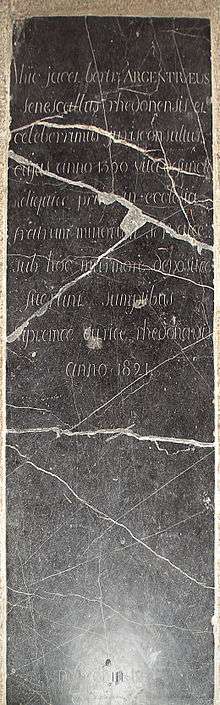 hic jacet bertr. ARGENTRÆUS
senescallus rhedonensis et
celeberrimus jurisconsultus
cujus anno 1590 vita functi
reliquiæ in ecclesia
fratrum minorum
sub hoc marmore depositæ
fuerunt sumptibus
supremæ curiæ rhedonensis
anno 1821